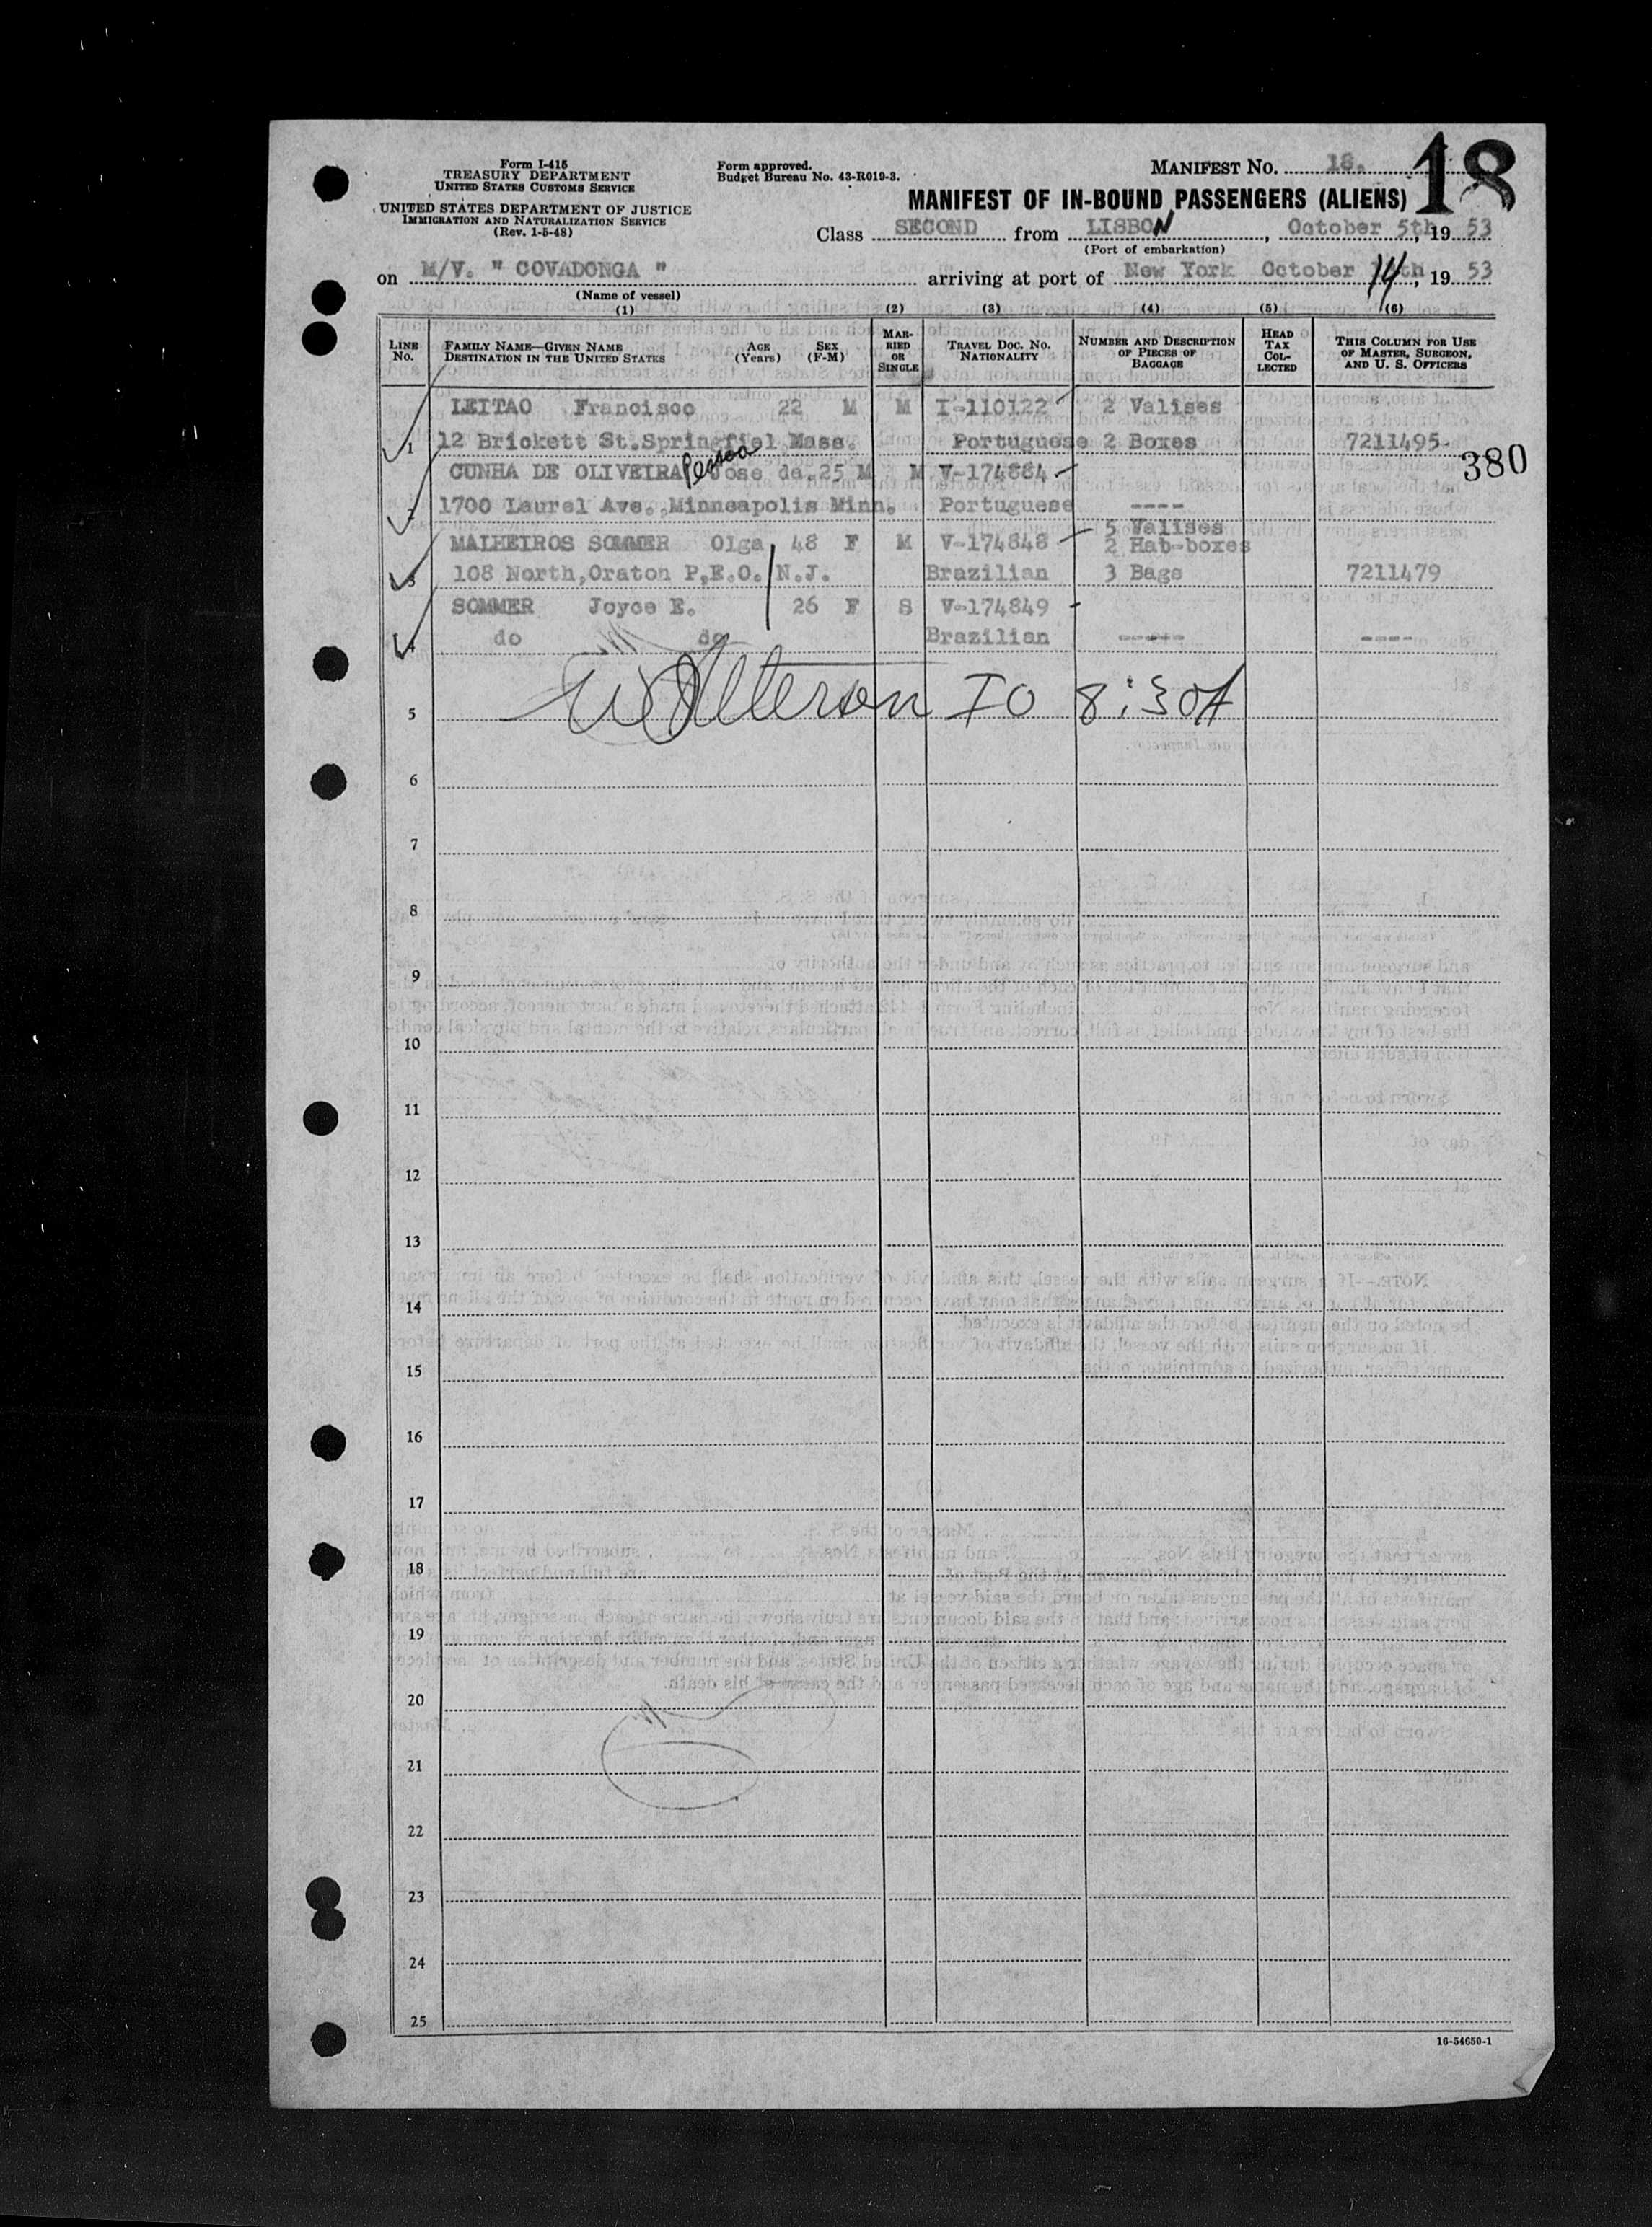 Form I-415
TREASURY DEPARTMENT
UNITED STATES CUSTOMS SERVICE
UNITED STATES DEPARTMENT OF JUSTICE
IMMIGRATION AND NATURALIZATION SERVICE
(Rev. 1-5-48)
Form approved.
Budget Bureau No. 43-R019-3.
MANIFEST No. 18.
18
MANIFEST OF IN-BOUND PASSENGERS (ALIENS)
Class SECOND from LISBON, October 5th, 19 53
(Port of embarkation)
on M/V. " COVADONGA " arriving at port of New York October 14th, 19 53
(Name of vessel)
(1) (2) (3) (4) (5) (6)
LINE No. FAMILY NAME—GIVEN NAME DESTINATION IN THE UNITED STATES AGE (Years) SEX (F-M) MARRIED OR SINGLE TRAVEL DOC. No. NATIONALITY NUMBER AND DESCRIPTION OF PIECES OF BAGGAGE HEAD TAX COLLECTED THIS COLUMN FOR USE OF MASTER, SURGEON, AND U. S. OFFICERS
LEITAO Francisco 22 M M I-110122 2 Valises
1 12 Brickett St.Springfiel Mass. Portuguese 2 Boxes 7211495-
380
CUNHA DE OLIVEIRA Pessoa Jose da. 25 M M V-174884
2 1700 Laurel Ave. Minneapolis Minn. Portuguese ----
MALHEIROS SOMMER Olga 48 F M V-174848 5 Valises
2 Hat-boxes
3 108 North,Oraton P,E.O. N.J. Brazilian 3 Bags 7211479
SOMMER Joyce E. 26 F S V-174849
4 do do Brazilian ----- ----
5 IO 8:30A
6
7
8
9
10
11
12
13
14
15
16
17
18
19
20
21
22
23
24
25
16-54650-1